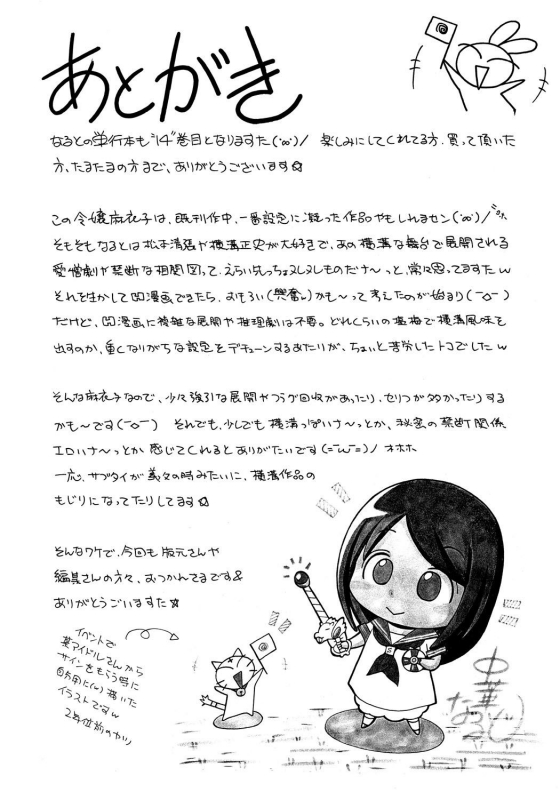 あとがき
なるとの単行本も"14"巻目となりますた(・ω・)/ 楽しみにしてくれてる方、買って頂いた
方、たまたまの方まで、ありがとうございます☆
この令嬢麻衣子は、既刊作中、一番設定に凝った作品かもしれませン(・ω・)/
そもそもなるとは松本清張や横溝正史が大好きで、あの横溝な舞台で展開される
愛憎劇や禁断な相関図って、えらい
ものだナ〜っと、常々思ってますたw
それを生かして凹漫画できたら、おもろい(興奮)かも〜って考えたのが始まり(￣◇￣)
だけど、凹漫画に複雑な展開や推理劇は不要。どれくらいの塩梅で横溝風味を
出すのか、重くなりがちな設定をデチューンするあたりが、ちょいと苦労したトコでしたw
そんな麻衣子なので、少々強引な展開やフラグ回収があったり、セリフが多かったりする
かも〜です(￣◇￣) それでも、少しでも横溝っぽいナ〜っとか、秘密の禁断関係
エロいナ〜っとか感じてくれるとありがたいです(=￣w￣=)ノ オホホ
一応、サブタイが義父の時みたいに、横溝作品の
もじりになってたりしてます☆
そんなワケで、今回も版元さんや
編集さんの方々、おつかれさまです&
ありがとうございますた☆
イベントで
某アイドルさんから
サインをもらう時に
自分用に(w)描いた
イラストですw
2年位前のカツ
中華
なると